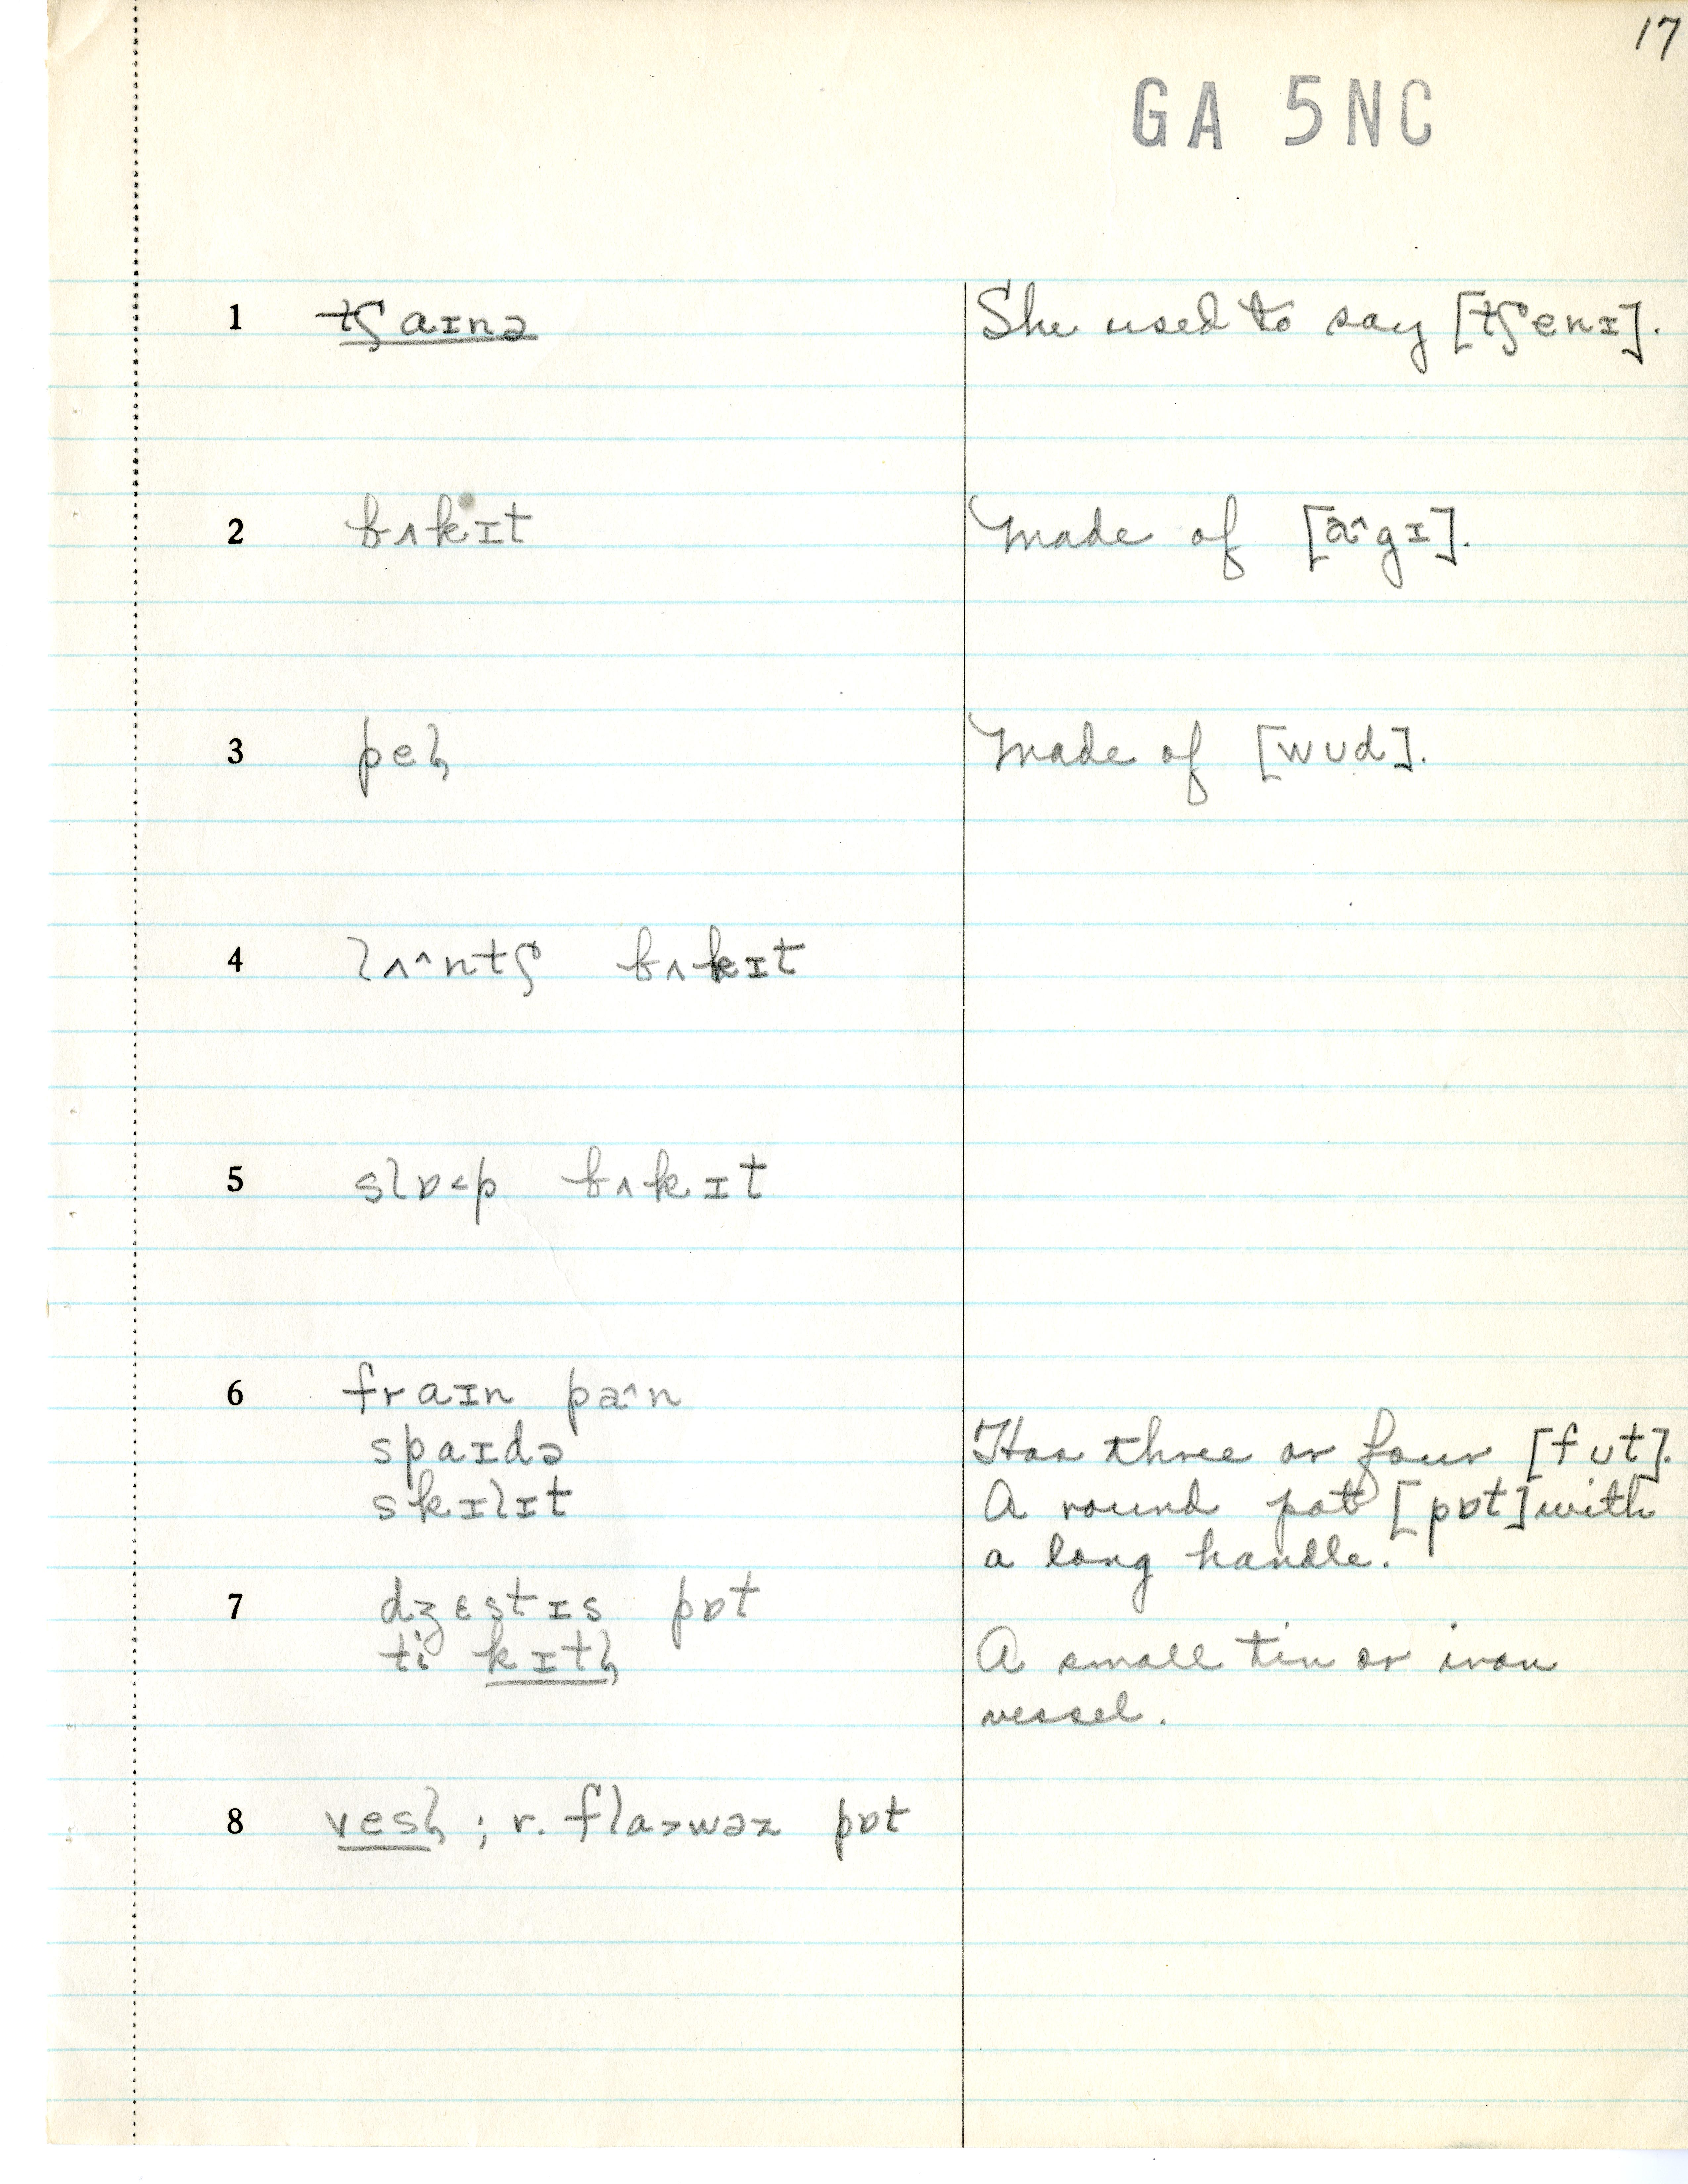 17
GA 5NC
1 tʃaɪnə She used to say [tʃenɪ].
2 bʌkɪt Made of [a^gɪ].
3 peḷ Made of [wud].
4 lʌ^ntʃ bʌkɪt
5 slɒ<p bʌkɪt
6 fraɪn pa^n
spaɪdə Has three or four [fut].
skɪlɪt A round pot [pɒt] with
a long handle.
7 dʒɛstɪs pɒt
ti kɪtḷ A small tin or iron
vessel.
8 vesḷ ; r. fla>wəz pɒt